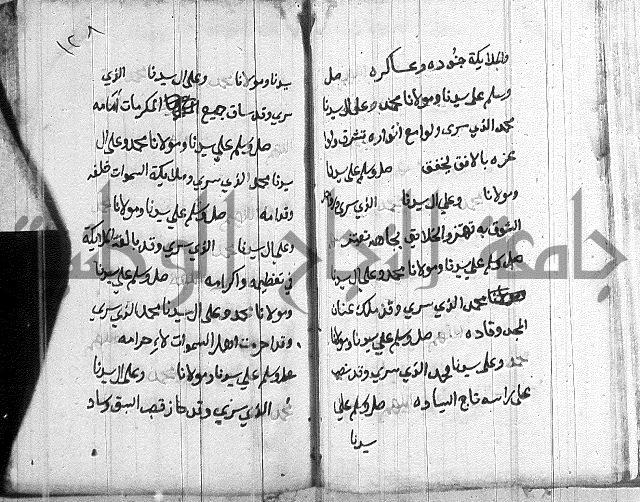 والملايكة جنوده وعساكره صل
وسلم على سيدنا ومولانا محمد وعلى ال سيدنا
محمد الذي سرى ولوامع انواره تشرق ولوا
عزه بالافق يخفق صل وسلم على سيدنا
ومولانا وعلى ال سيدنا الذي سرى
الشوق به تهتز والخلايق بجاهه تعتز
صل وسلم على سيدنا ومولانا محمد وعلى ال سيدنا
محمد الذي سرى وقد ملك عنان
المجد وقاده صل وسلم على سيدنا ومولانا
محمد وعلى سيدنا محمد الذي سرى وقد
على راسه تاج السياده صل وسلم على
سيدنا
١٢٨
سيدنا ومولانا محمد وعلى ال سيدنا الذي
سرى وقد ساق جميع المكرمات امامه
صل وسلم على سيدنا ومولانا محمد وعلى ال
سيدنا محمد الذي سرى وملايكة السموات خلفه
وقدامه صل وسلم على سيدنا ومولانا محمد
وعلى ال سيدنا محمد الذي سرى وقد بالغة الملايكة
في تعظيمه واكرامه صل وسلم على سيدنا
ومولانا محمد وعلى ال سيدنا محمد الذي سرى
وقد احرمت اهل السموات لاحرامه
صل وسلم على سيدنا ومولانا محمد وعلى ال سيدنا
محمد الذي سرى وقد حاز قصب السبق وساد
جامعة النجاح الوطنية